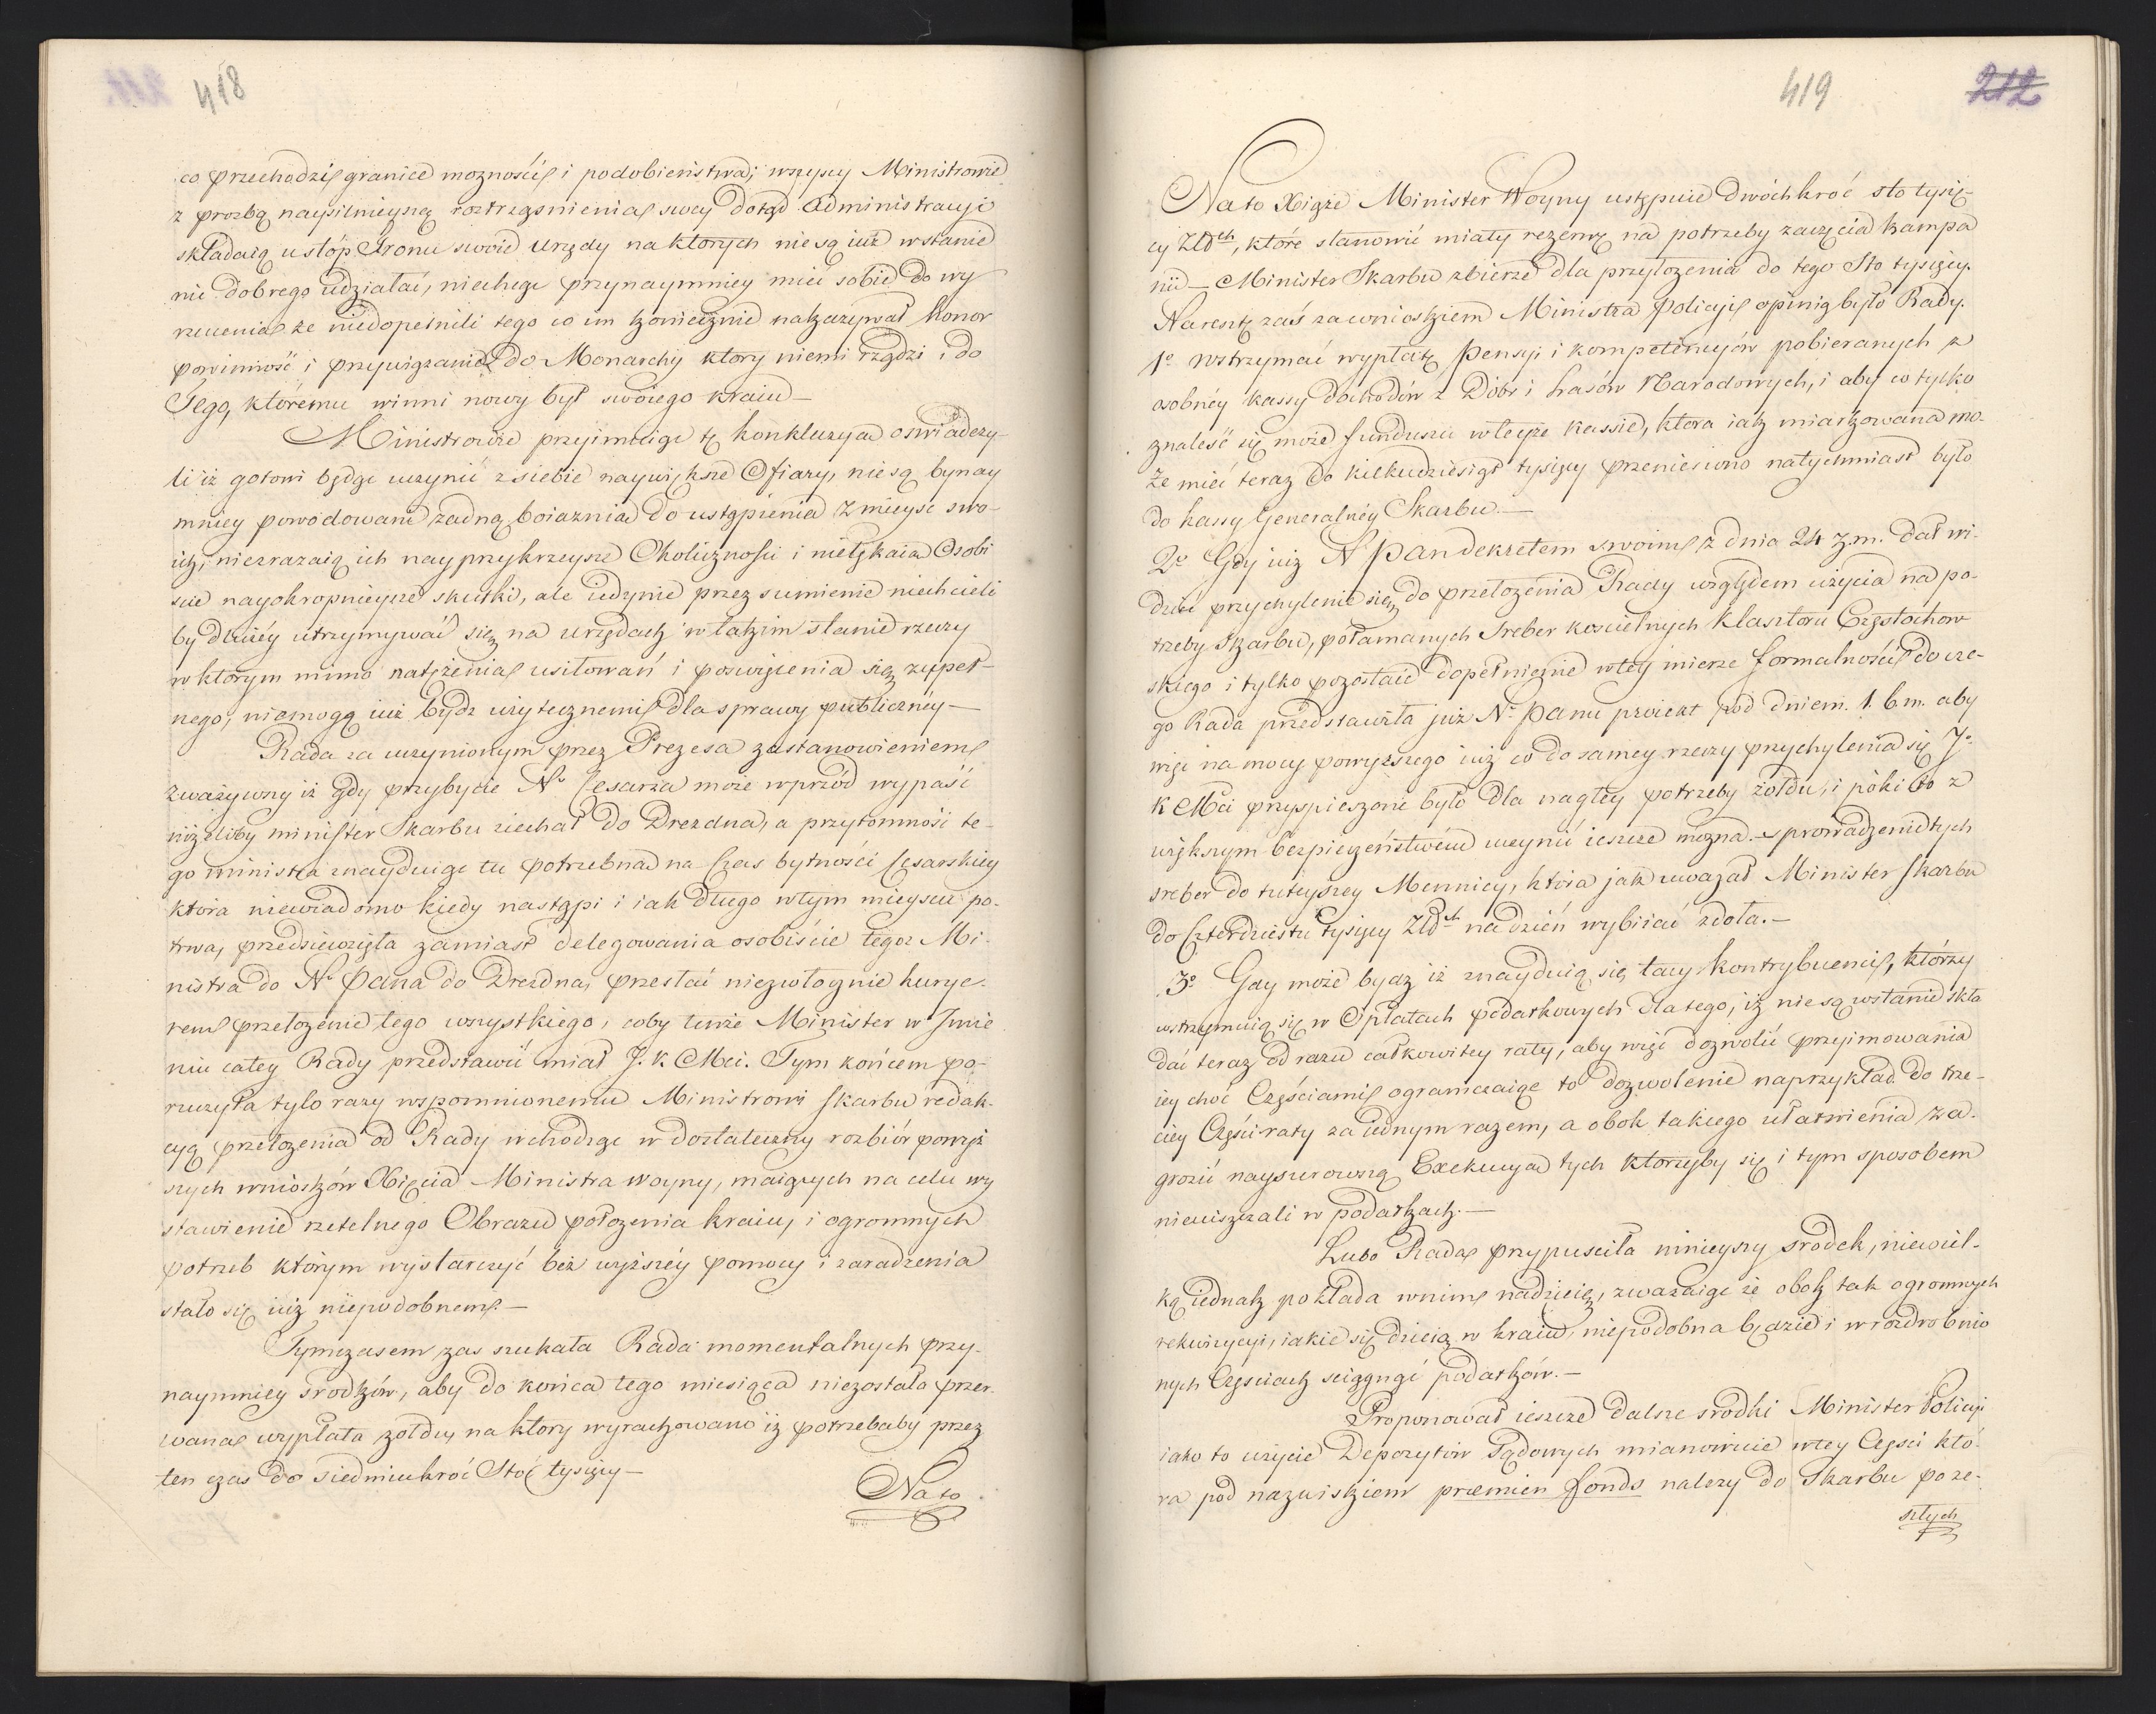 418
co przechodzi granice mozności i podobieństwa; wszyscy Ministrowie
z prozbą naysilnieyszą roztrząsnienia swey dotąd Administracyi
składaią u stóp Tronu swoie Urzędy na ktorych nie są iuż wstanie
nic dobrego udziałać, niechcąc przynaymniey mieć sobie do wy
rzucenia że niedopełnili tego co im koniecznie nakazywał honor
powinność i przywiązanie do Monarchy ktory niemi rządzi i do
Tego, któremu winni nowy byt swoiego kraiu —
Ministrowie przyimuiąc tę konkluzyą oswiadczy-
li iż gotowi będąc uczynić z siebie naywiększe Ofiary, nie są bynay
mniey powodowani żadną boiaznią do ustąpienia z mieysc swo-
ich, niezrazaią ich nayprzykrzeysze Okoliczności i nielękaią Osobi
scie nayokropnieysze skutki, ale iedynie przez sumienie niechcieli
by dłużéy utrzymywać się na urzędach w takim stanie rzeczy
w ktorym mimo natężenia usiłowań i poswięcenia się zupeł-
nego, niemogą iuż bydz użytecznemi dla sprawy publicznéy —
Rada za uczynionym przez Prezesa zastanowieniem
zważywszy iż gdy przybycie N. Cesarza może wprzód wypaść
niżeliby minister Skarbu ziechał do Drezdna, a przytomność te-
go ministra znayduiąc tu potrzebną na Czas bytności Cesarskiey
ktora niewiadomo kiedy nastąpi i iak długo wtym mieyscu po-
trwa, przedsięwzięła zamiast delegowania osobiście tegoz Mi-
nistra do N. Pana do Drezdna, przesłać niezwłocznie kurye-
rem przełożenie tego wszystkiego, coby tenże Minister w Imie
niu całey Rady przedstawić miał J. K. Mci. Tym końcem po-
ruczyła tylo razy wspomnionemu Ministrowi skarbu redak-
cyą przełożenia od Rady wchodząc w dostateczny rozbiór powyż
szych wnioskżów Xięcia Ministra woyny, maiących na celu wy
stawienie rzetelnego Obrazu położenia kraiu, i ogromnych
potrzeb którym wystarczyć bez wyższéy pomocy i zaradzenia
stało się iuż niepodobnem. —
Tymczasem zas szukała Rada momentalnych przy-
naymniey srodków, aby do końca tego miesiąca niezostała przer-
wana wypłata zołdu, na ktory wyrachowano iż potrzebaby przez
ten czas do siedmiukroć Sto tysięcy —
Na to
419
212
Na to Xiąże Minister Woyny ustępuie dwóchkroć sto tysię-
cy Złłch, które stanowić miały rezerwę na potrzeby zaczęcia kampa
nii — Minister Skarbu zbierze dla przyłożenia do tego Sto tysięcy.
Naresztę zaś za wnioskiem Ministra Policyi opinią było Rady.
1o wstrzymać wypłatę pensyi i kompetencyów pobieranych z
osobnéy kassy dochodów z Dóbr i Lasów Narodowych, i aby co tylko
znaleść się może funduszu wteyże kassie, ktora iak miarkowana mo-
że mieć teraz do kilkudziesiąt tysięcy przeniesiono natychmiast było
do kassy Generalnéy Skarbu. —
2o Gdy iuż N Pan dekretem swoim z dnia 24 z.m. dał wi-
dzieć przychylenie się do przełożenia Rady względem użycia na po-
trzeby Skarbu, połamanych Sreber koscielnych Klasztoru Częstochow-
skiego i tylko pozostaie dopełnienie wtey mierze formalności do cze-
go Rada przedstawiła już No Panu proiekt pod dniem. 1. b.m. aby
więc na mocy powyższego iuż co do samey rzeczy przychylenia się J.
K Mci przyspieszone było dla nagłey potrzeby żołdu, i póki to z
większym bezpieczeństwem uczynić ieszcze można. — sprowadzenie tych
sreber do tuteyszey Mennicy, ktora jak uważał Minister skarbu
do Czterdziestu tysięcy Złłch na dzień wybiiać zdoła. —
3o Gdy może bydz iż znayduią się tacy kontrybuenci, którzy
wstrzymuią się w Opłatach podatkowych dla tego, iż nie są wstanie skła
dać teraz od razu całkowitey raty, aby więc dozwolić przyimowania
iey choć Częściami ograniczaiąc to dozwolenie naprzykład do trze-
ciey Części raty za iednym razem, a obok takiego ułatwienia za-
grozić naysurowszą Exekucyą tych ktorzyby się i tym sposobem
nieuiszczali w podatkach. —
Lubo Rada przypuscila ninieyszy srodek, niewiel-
ką iednak pokłada wnim nadzieię, zważaiąc że obok tak ogromnych
rekwizycyi, iakie się dzieią w kraiu, niepodobna będzie i w rozdrobnio
nych Częściach sciągnąć podatków. —
Proponował ieszcze dalsze srodki Minister Policyi
iako to użycie Depozytów Sądowych mianowicie wtey Części któ-
ra pod nazwiskiem præmien fonds nalezy do Skarbu po ze-
szłych